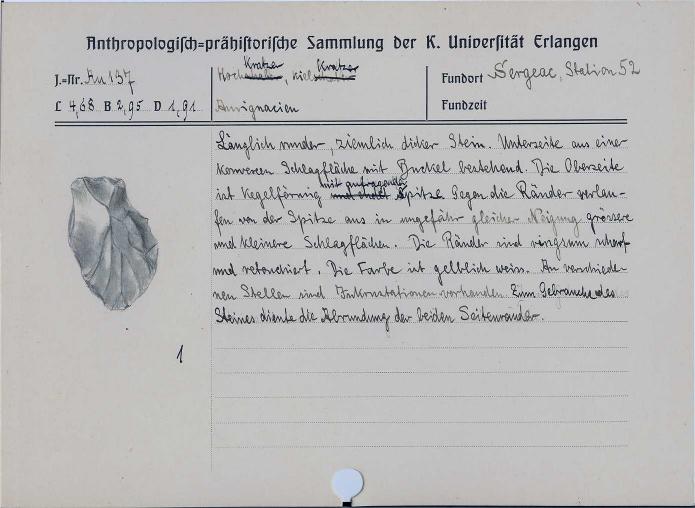 Anthropologisch=prähistorische Sammlung der K. Universität Erlangen
J.=Nr. Au 137
Kratzer Kratzer
Hoch, Kiel
Fundort Sergeac, Station 52
L 4,68 B 2,95 D 1,91
Aurignacien
Fundzeit
Länglich runder, ziemlich dicker Stein. Unterseite aus einer
konvexen Schlagfläche mit Buckel bestehend. Die Oberseite
mit aufragender
ist kegelförmig Spitze. Gegen die Ränder verlau-
fen von der Spitze aus in ungefähr gleicher Neigung grössere
und kleinere Schlagflächen. Die Ränder sind ringsum scharf
und retouchiert. Die Farbe ist gelblich weiss. An verschiede-
nen Stellen sind Inkrustationen vorhanden. Zum Gebrauche des
Steines diente die Abrundung der beiden Seitenränder.
1